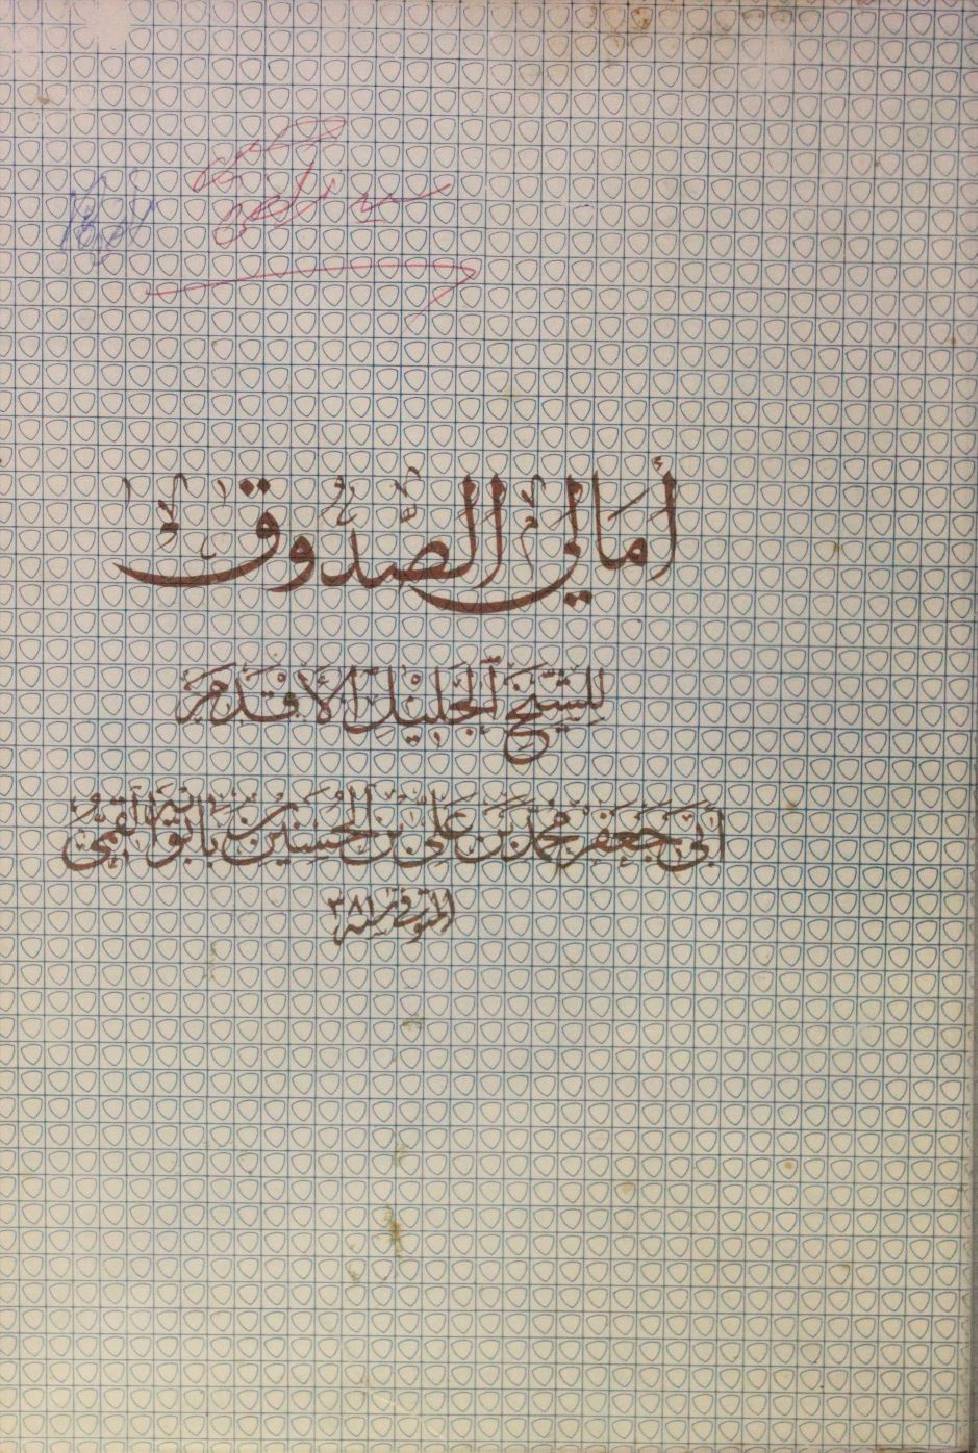 أمالي الصدوق
للشيخ الجليل الأقدم
ابي جعفر محمد بن علي بن الحسين بن بابويه القمي
المتوفى سنة ٣٨١